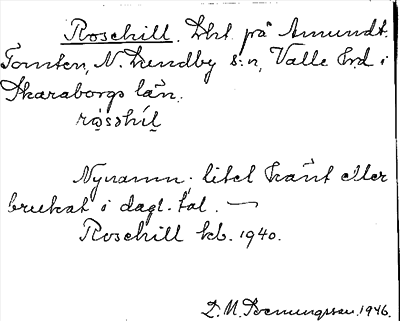 Rosehill. Lht på Amundt.
Tomten, N. Lundby s:n, Valle hd i
Skaraborgs län.
råsshíl
Nynamn; litet känt eller
brukat i dagl. tal. —
Rosehill kb. 1940.
D. M. 1946.